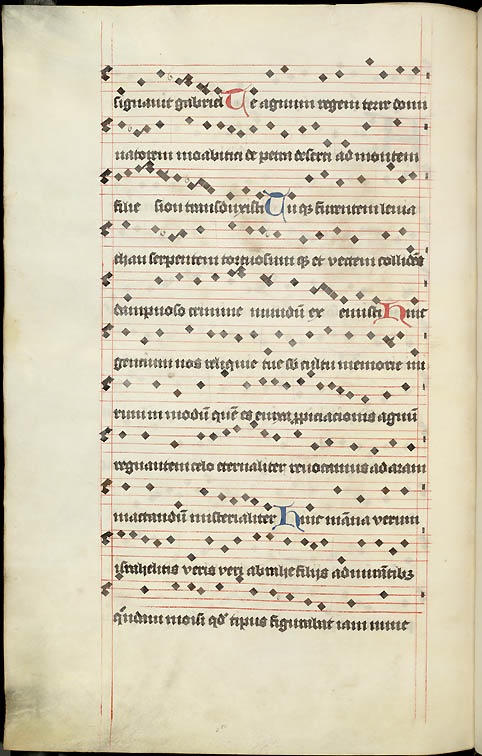 signauit gabriel Te agnum regem terre domi
natorem moabitici de petra deserti ad montem
filie sion transduxisti Tu q3 furentem leuia
than serpentem tortuosum q3 et vectem collidēs
dampnoso crimine mundū ex emisti Hinc
gentium nos reliquie tue sb cultu memorie mi
rum in modū quē es enixa ppiciacionis agnū
regnantem celo eternaliter reuocamus ad aram
mactandū misterialiter Hinc māna verum
israhelitis veris veri abrahe filijs admirātib3
qndam moisi qd tipus figurabat iam nunc